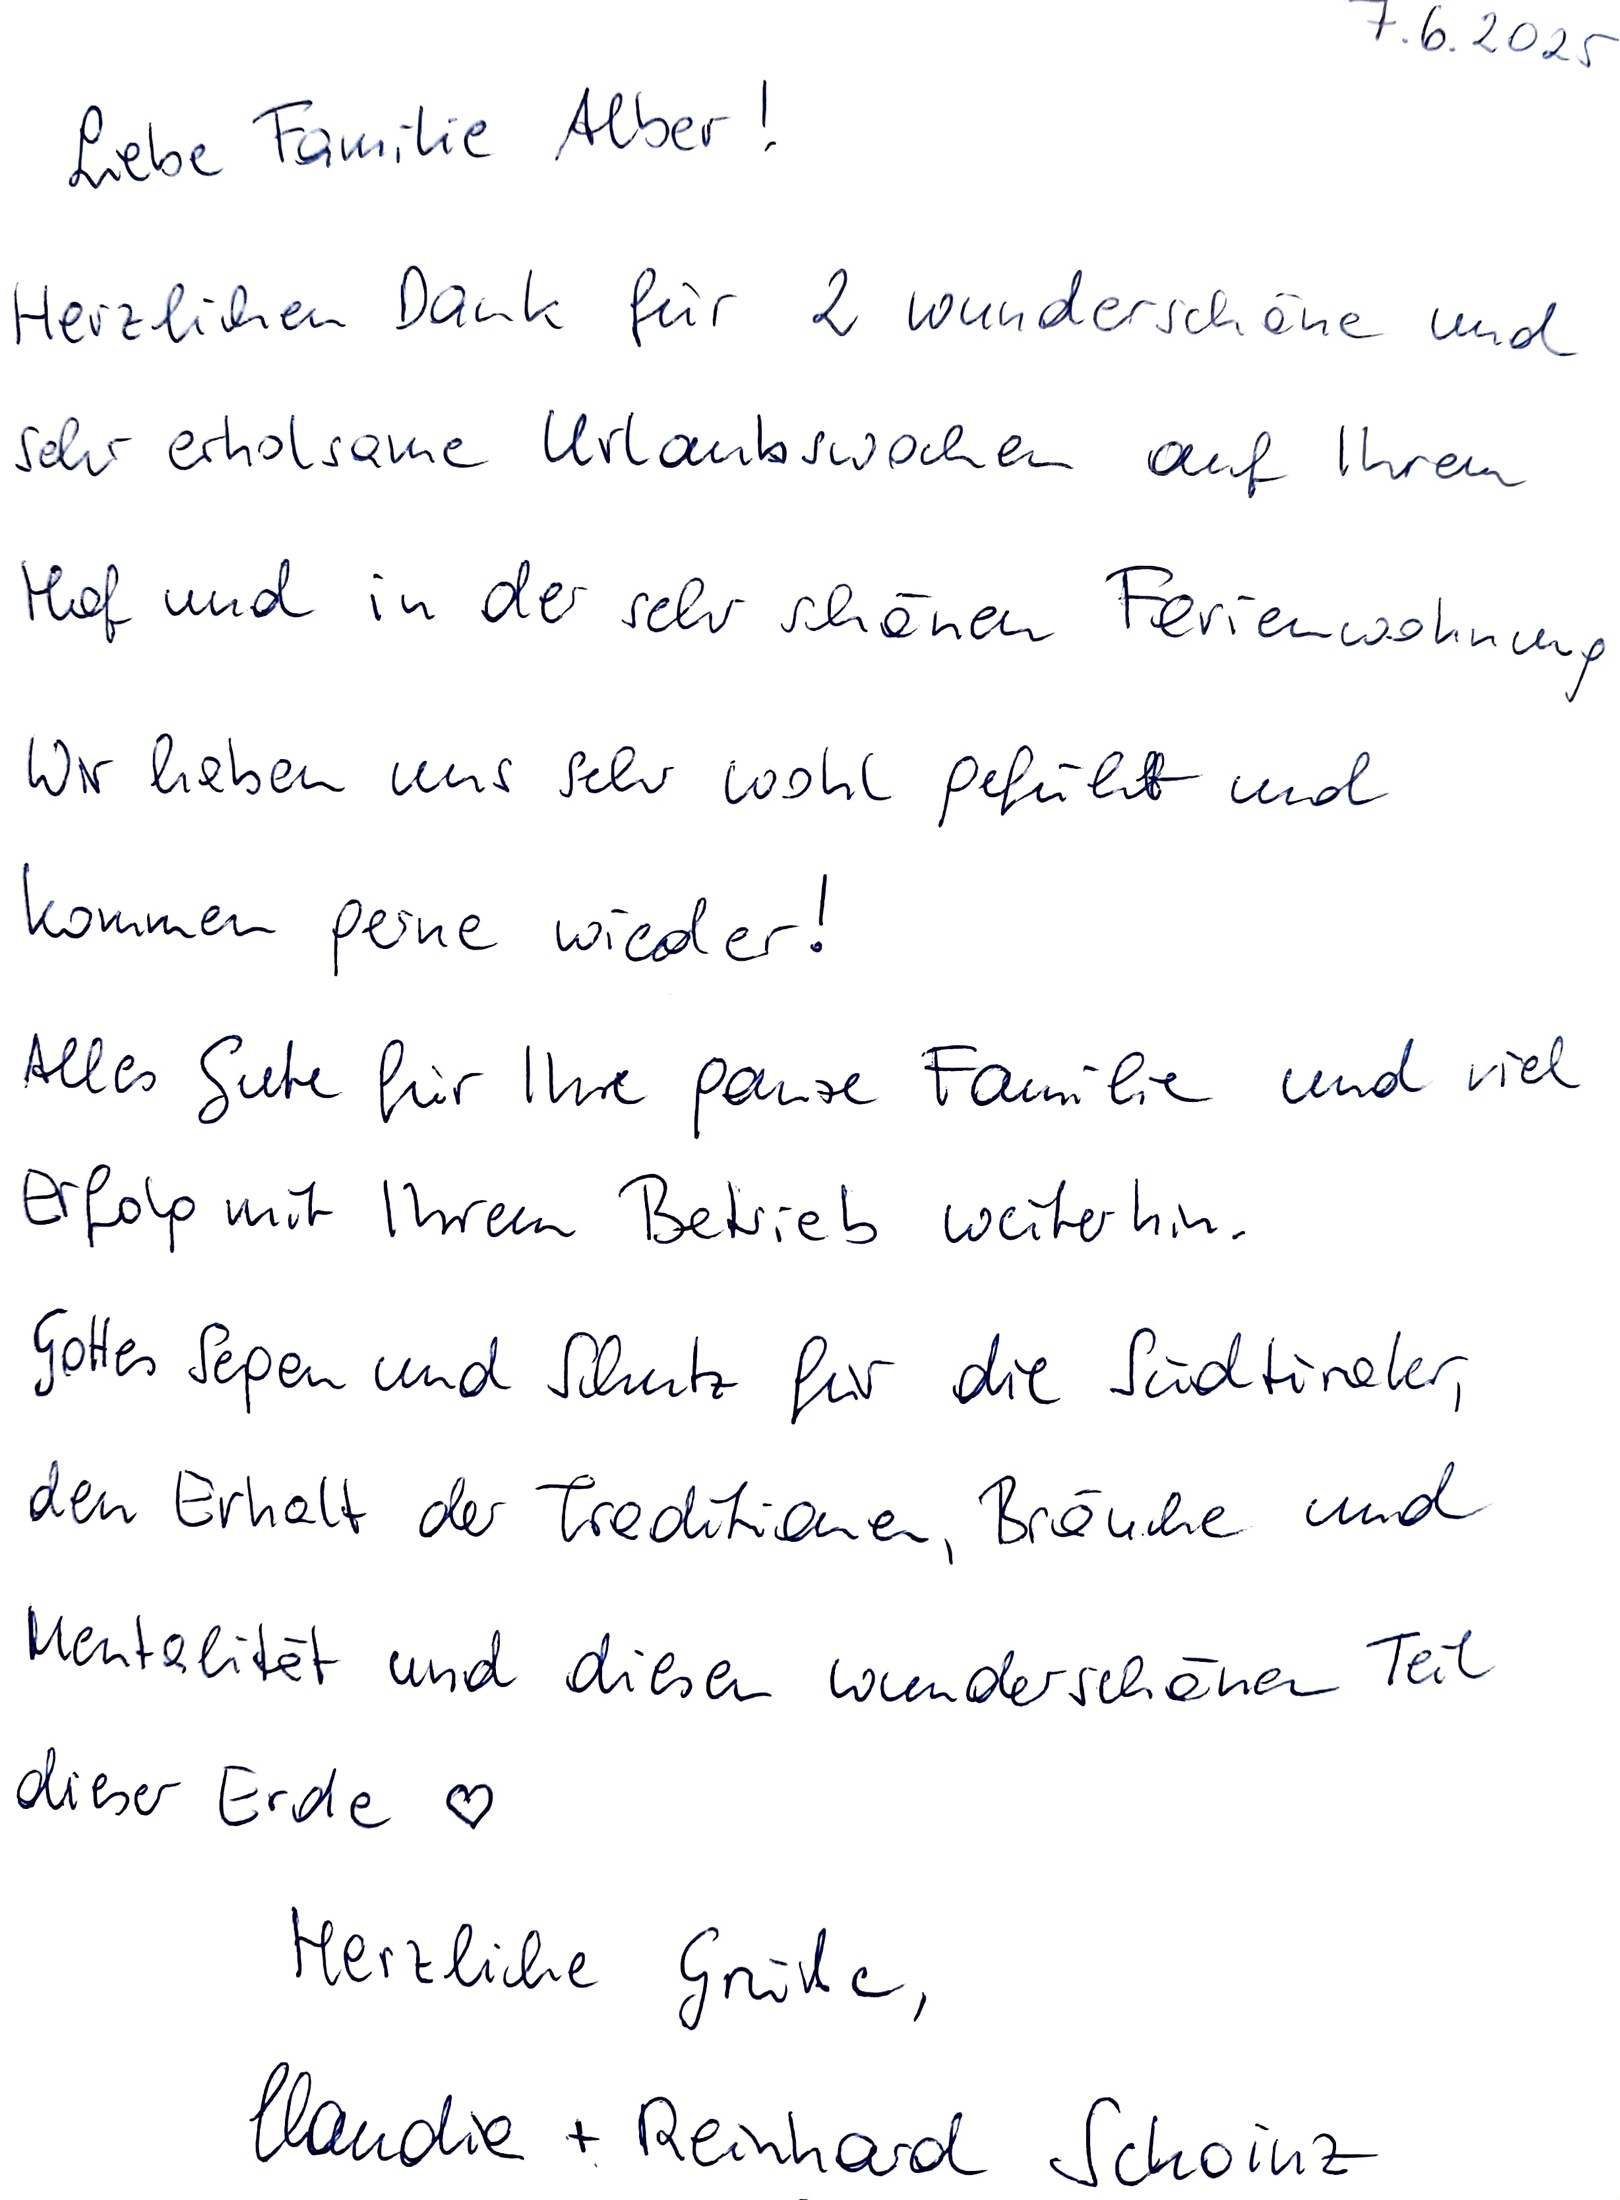 7.6.2025
Liebe Familie Alber!
Herzlichen Dank für 2 wunderschöne und
sehr erholsame Urlaubswochen auf Ihrem
Hof und in der sehr schönen Ferienwohnung
Wir haben uns sehr wohl gefühlt und
kommen gerne wieder!
Alles Gute für Ihre ganze Familie und viel
Erfolg mit Ihrem Betrieb weiterhin.
Gottes Segen und Schutz für die Südtiroler,
den Erhalt der Traditionen, Bräuche und
Mentalität und diesen wunderschönen Teil
dieser Erde ♡
Herzliche Grüße,
Claudia + Reinhard Schoinz